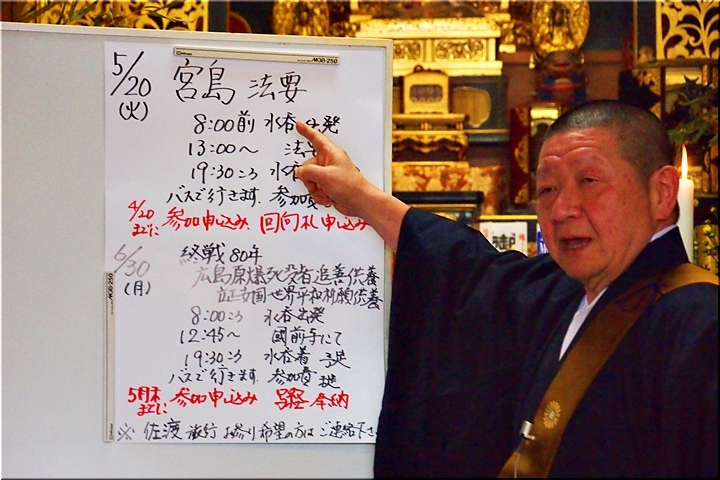 MGB-250
5/20
(火)
宮島 法要
8:00前 水呑出発
13:00〜 法要
19:30ごろ 水呑
バスで行きます. 参加費
4/20までに 参加申込み. 回向札申込み
6/30
(月)
終戦80年
広島原爆死没者追善供養
立正安国世界平和祈願供養
8:00ごろ 水呑出発
12:45〜 國前寺にて
19:30ごろ 水呑着 予定
バスで行きます. 参加費
5月末までに 参加申込み 写経奉納
※ 佐渡旅行 お参り希望の方はご連絡下さ
MGB-250